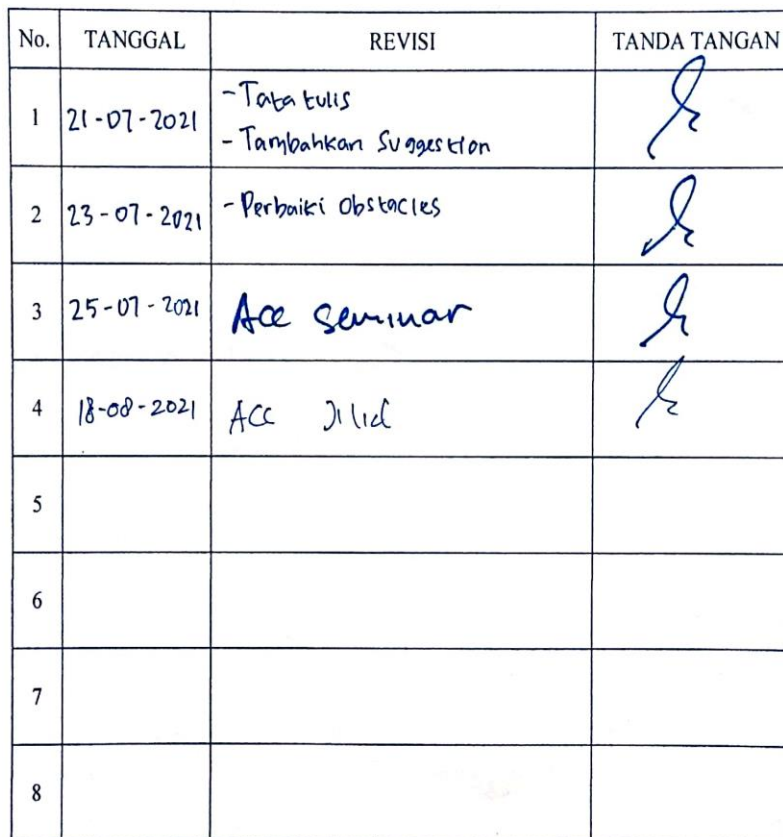 No. TANGGAL REVISI TANDA TANGAN
1 21-07-2021 - Tata tulis
- Tambahkan Suggestion
2 23-07-2021 - Perbaiki Obstacles
3 25-07-2021 Acc seminar
4 18-08-2021 ACC Jilid
5
6
7
8